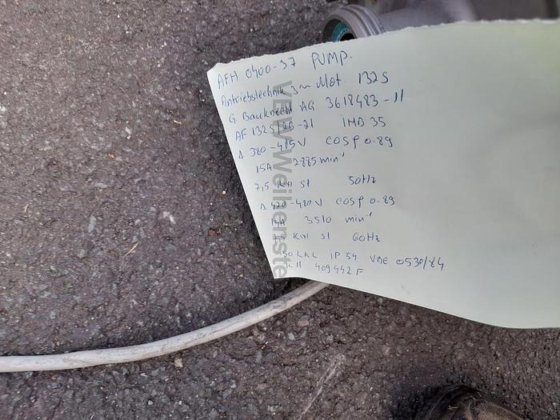 AFH 0400-37 PUMP.
Antriebstechnik 3~ Mot. 132S
G Bauknecht AG 3618483-11
AF 132S/ -21 IMB 35
Δ 380-415V COSφ 0.89
15A 2885 min⁻¹
7,5 KW S1 50Hz
Δ 420-480V COSφ 0.89
3510 min⁻¹
KW S1 60Hz
ISO KL IP 54 VDE 0530/84
409442 P
VDW Weihenste